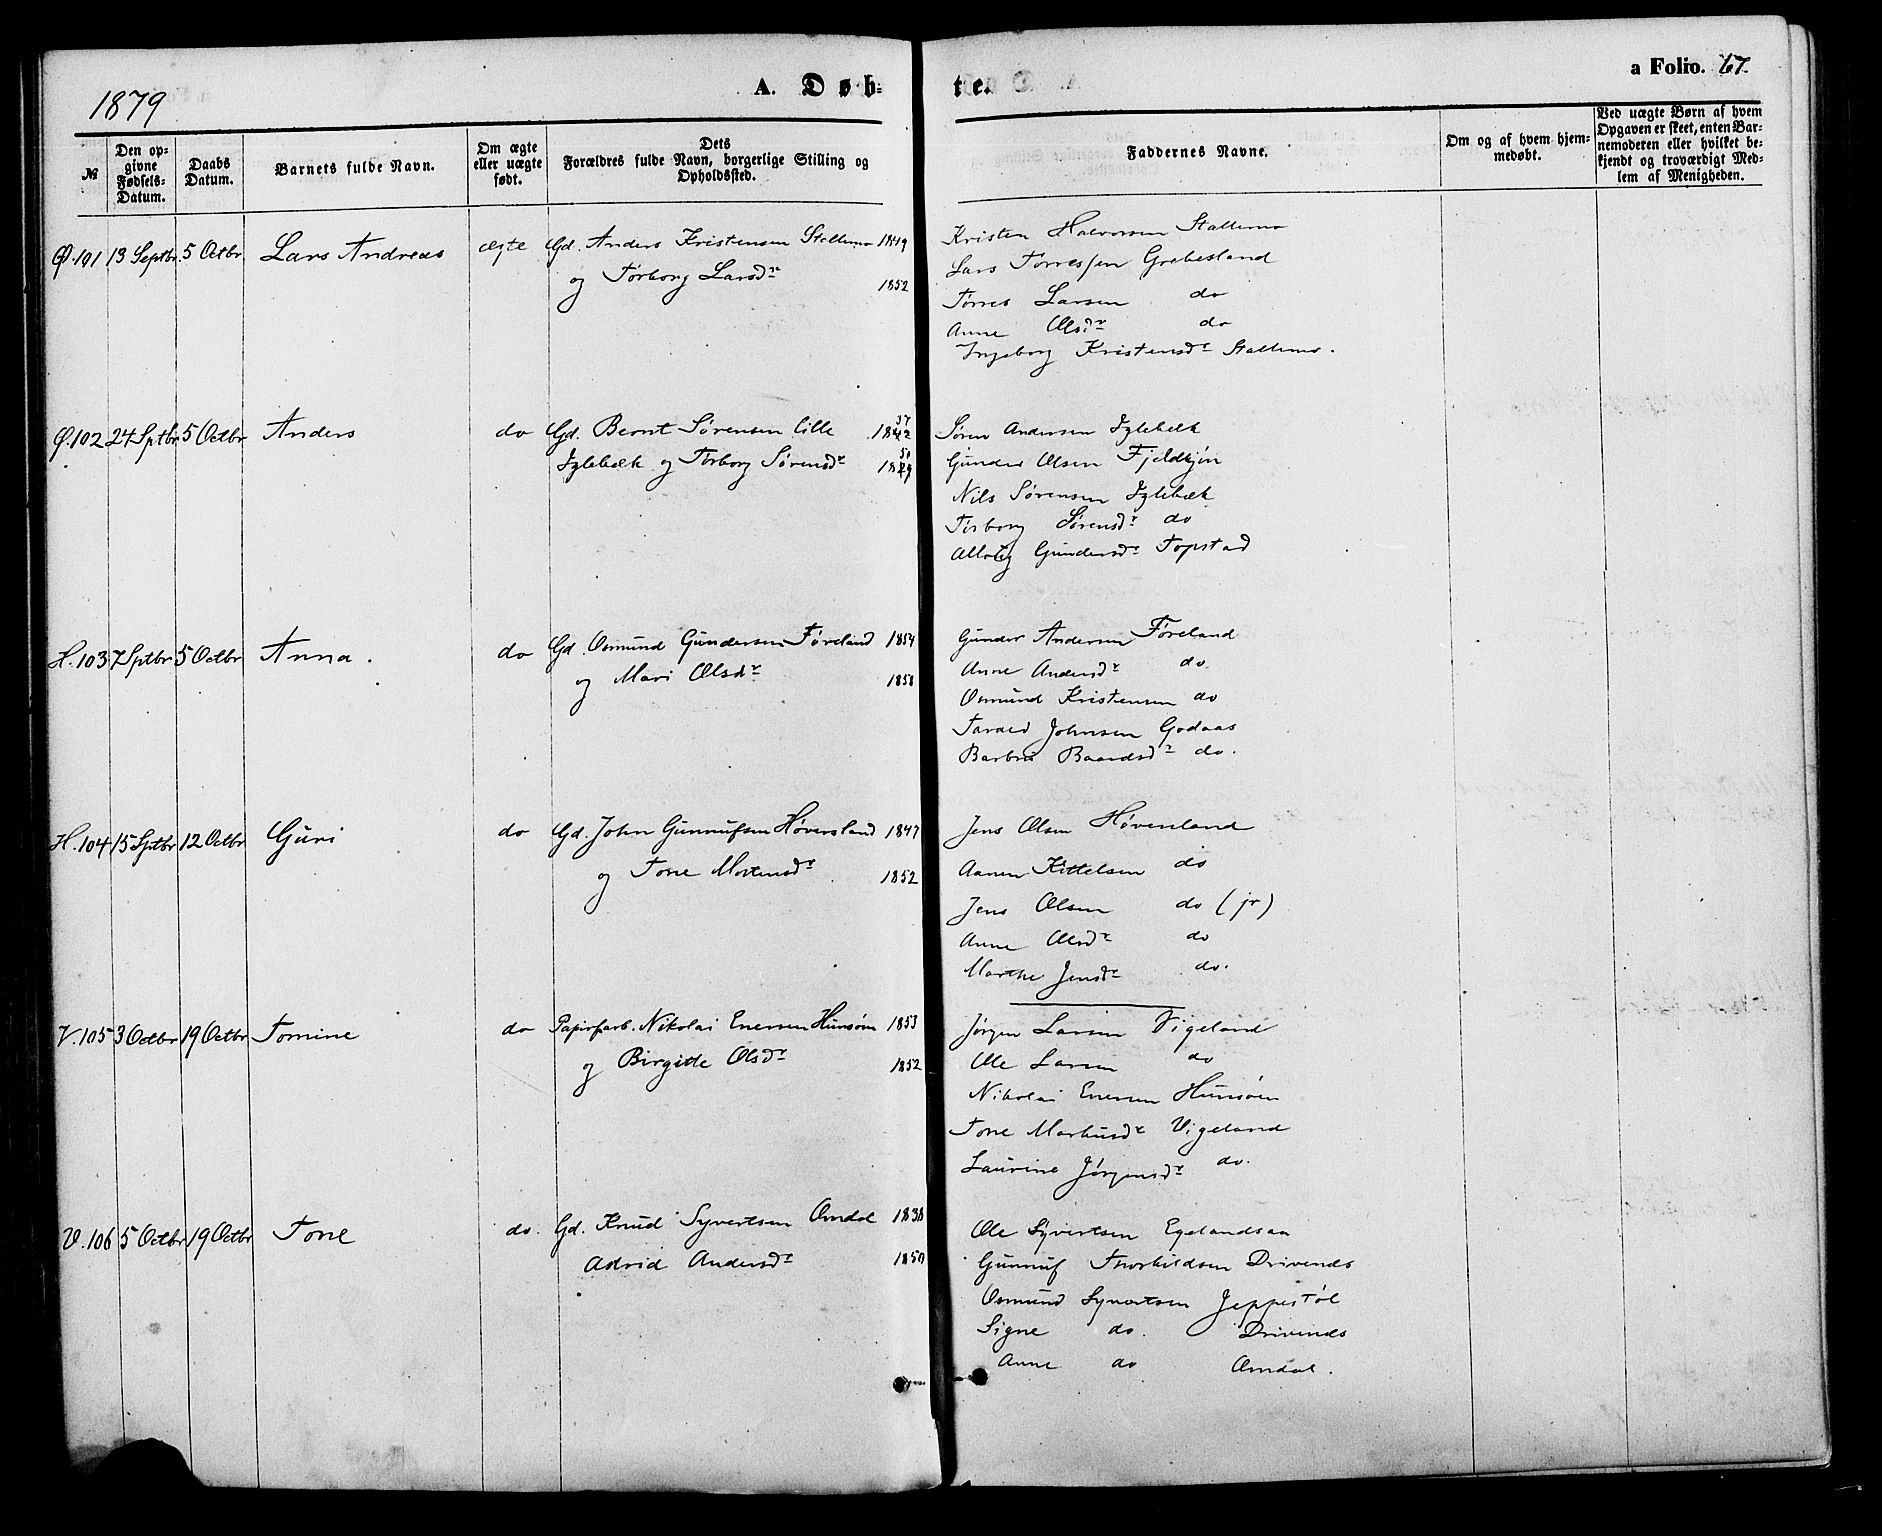 1879
A. Døb-
te.
a Folio. 67.
№
Den op-
givne
Fødsels-
Datum.
Daabs
Datum.
Barnets fulde Navn.
Om ægte
eller uægte
født.
Dets
Forældres fulde Navn, borgerlige Stilling og
Opholdssted.
Faddernes Navne.
Om og af hvem hjem-
medøbt.
Ved uægte Børn af hvem
Opgaven er skeet, enten Bar-
nemoderen eller hvilket be-
kjendt og troværdigt Med-
lem af Menigheden.
Ø.101 13 Septbr. 5 Octbr. Lars Andreas ægte Gd. Anders Kristensen Stallemo 1849
og Tørborg Larsdr 1852
Kristen Halvorsen Stallemo
Lars Torressen Grebesland
Tørres Larsen do
Anne Olsdr do
Ingeborg Kristensdr Stallemo.
Ø.102 24 Sptbr 5 Octbr Anders do Gd. Bernt Sørensen lille
Iglebæk og Tørborg Sørensdr
Søren Andersen Iglebæk
Gunder Olsen Fjeldkjøn
Nils Sørensen Iglebæk
Tørborg Sørensdr do
Gundersdr Topstad
H.103 7 Sptbr 5 Octbr Anna. do Gd. Osmund Gundersen Føreland 1854
og Mari Olsdr 1858
Gunder Andersen Føreland
Anne Andersdr do
Osmund Kristensen do
Tarald Johnsen Godaas
Barbro Baardsdr do.
H.104 15 Sptbr 12 Octbr Guri do Gd. John Gunnufsen Høversland 1847
og Tone Mortensdr 1852
Jens Olsen Høversland
Aanen Kittelsen do
Jens Olsen do (jr)
Anne Olsdr do
Marthe Jensdr do.
V.105 3 Octbr 19 Octbr Tomine do Papirfarb. Nikolai Enersen Hunsøen 1853
og Birgitte Olsdr 1852
Jørgen Larsen Vigeland
Ole Larsen do
Nikolai Enersen Hunsøen
Tone Markusdr Vigeland
Laurine Jørgensdr do.
V.106 5 Octbr 19 Octbr Tone do. Gd. Knud Syvertsen Omdal 1838
Astrid Andersdr 1850
Ole Syvertsen Egelandsaa
Gunnuf Thorkildsen Drivenes
Osmund Syvertsen Jeppestøl
Signe do. Drivenes
Anne do Omdal.